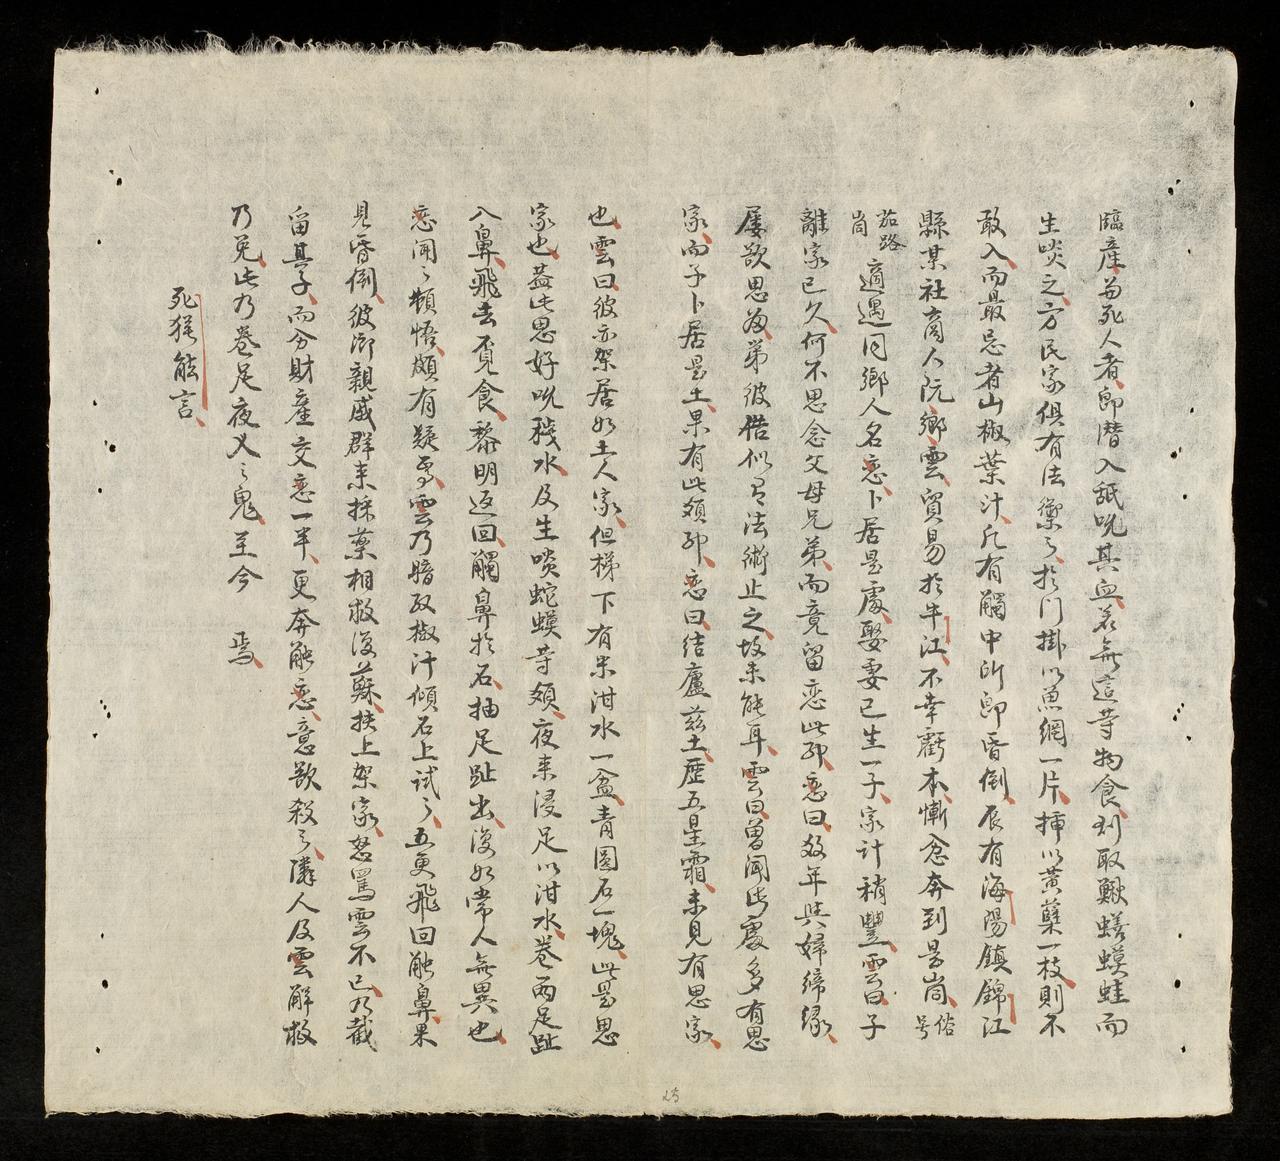 臨産而死人者即潜入舐吮其血若無這等物食刈取鰍蟮蟆蛙而
生啖之方民家俱有法禦之於門掛以魚網一片揷以黄蘗一枝則不
敢入而最忌者山椒葉汁凡有觸中所即昏倒辰有海陽鎮錦江
縣某社商人阮鄉雲貿易於牛江不幸虧本慚忿奔到是峝俗号
茄路峝適遇同鄉人名恋卜居是處娶妻已生一子家計稍豐雲曰子
離家已久何不思念父母兄弟而竟留恋此耶恋曰數年與婦締縁
屡欲思為弟彼借似有法術止之故未能耳雲曰曽聞此處多有思
家而子卜居是土果有此頬耶恋曰结廬兹土歴五星霜未見有思家
也雲曰彼亦架居如土人家但梯下有米泔水一盆青圓石一塊此是思
家也盖此思好吮穢水及生啖蛇蟆等類夜来浸足以泔水巻兩足趾
入鼻飛去覓食黎明返回觸鼻於石抽足趾出復如常人無異也
恋聞之頓悟頗有疑焉雲乃暗取椒汁傾石上試之五更飛回触鼻果
見昏倒彼派親戚群来採薬相救復蘇扶上架家怒罵雲不已乃截
留其子而分財産交恋一半更奔触恋意欲殺之隣人及雲解救
乃免此乃巻足夜叉之鬼至今 焉
死猴能言